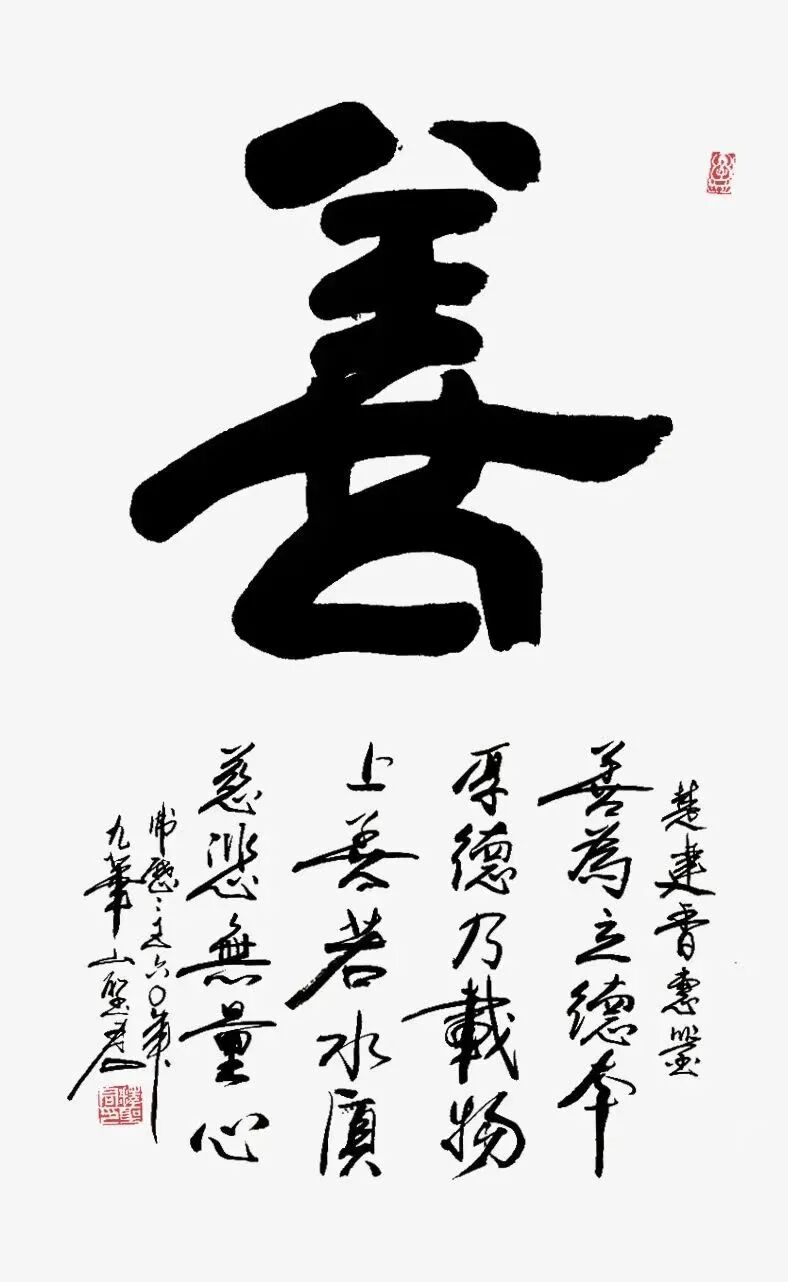 善
楚建香惠鑒
善為立德本
厚德乃載物
上善若水廣
慈悲無量心
佛歷二五六〇年
九華山